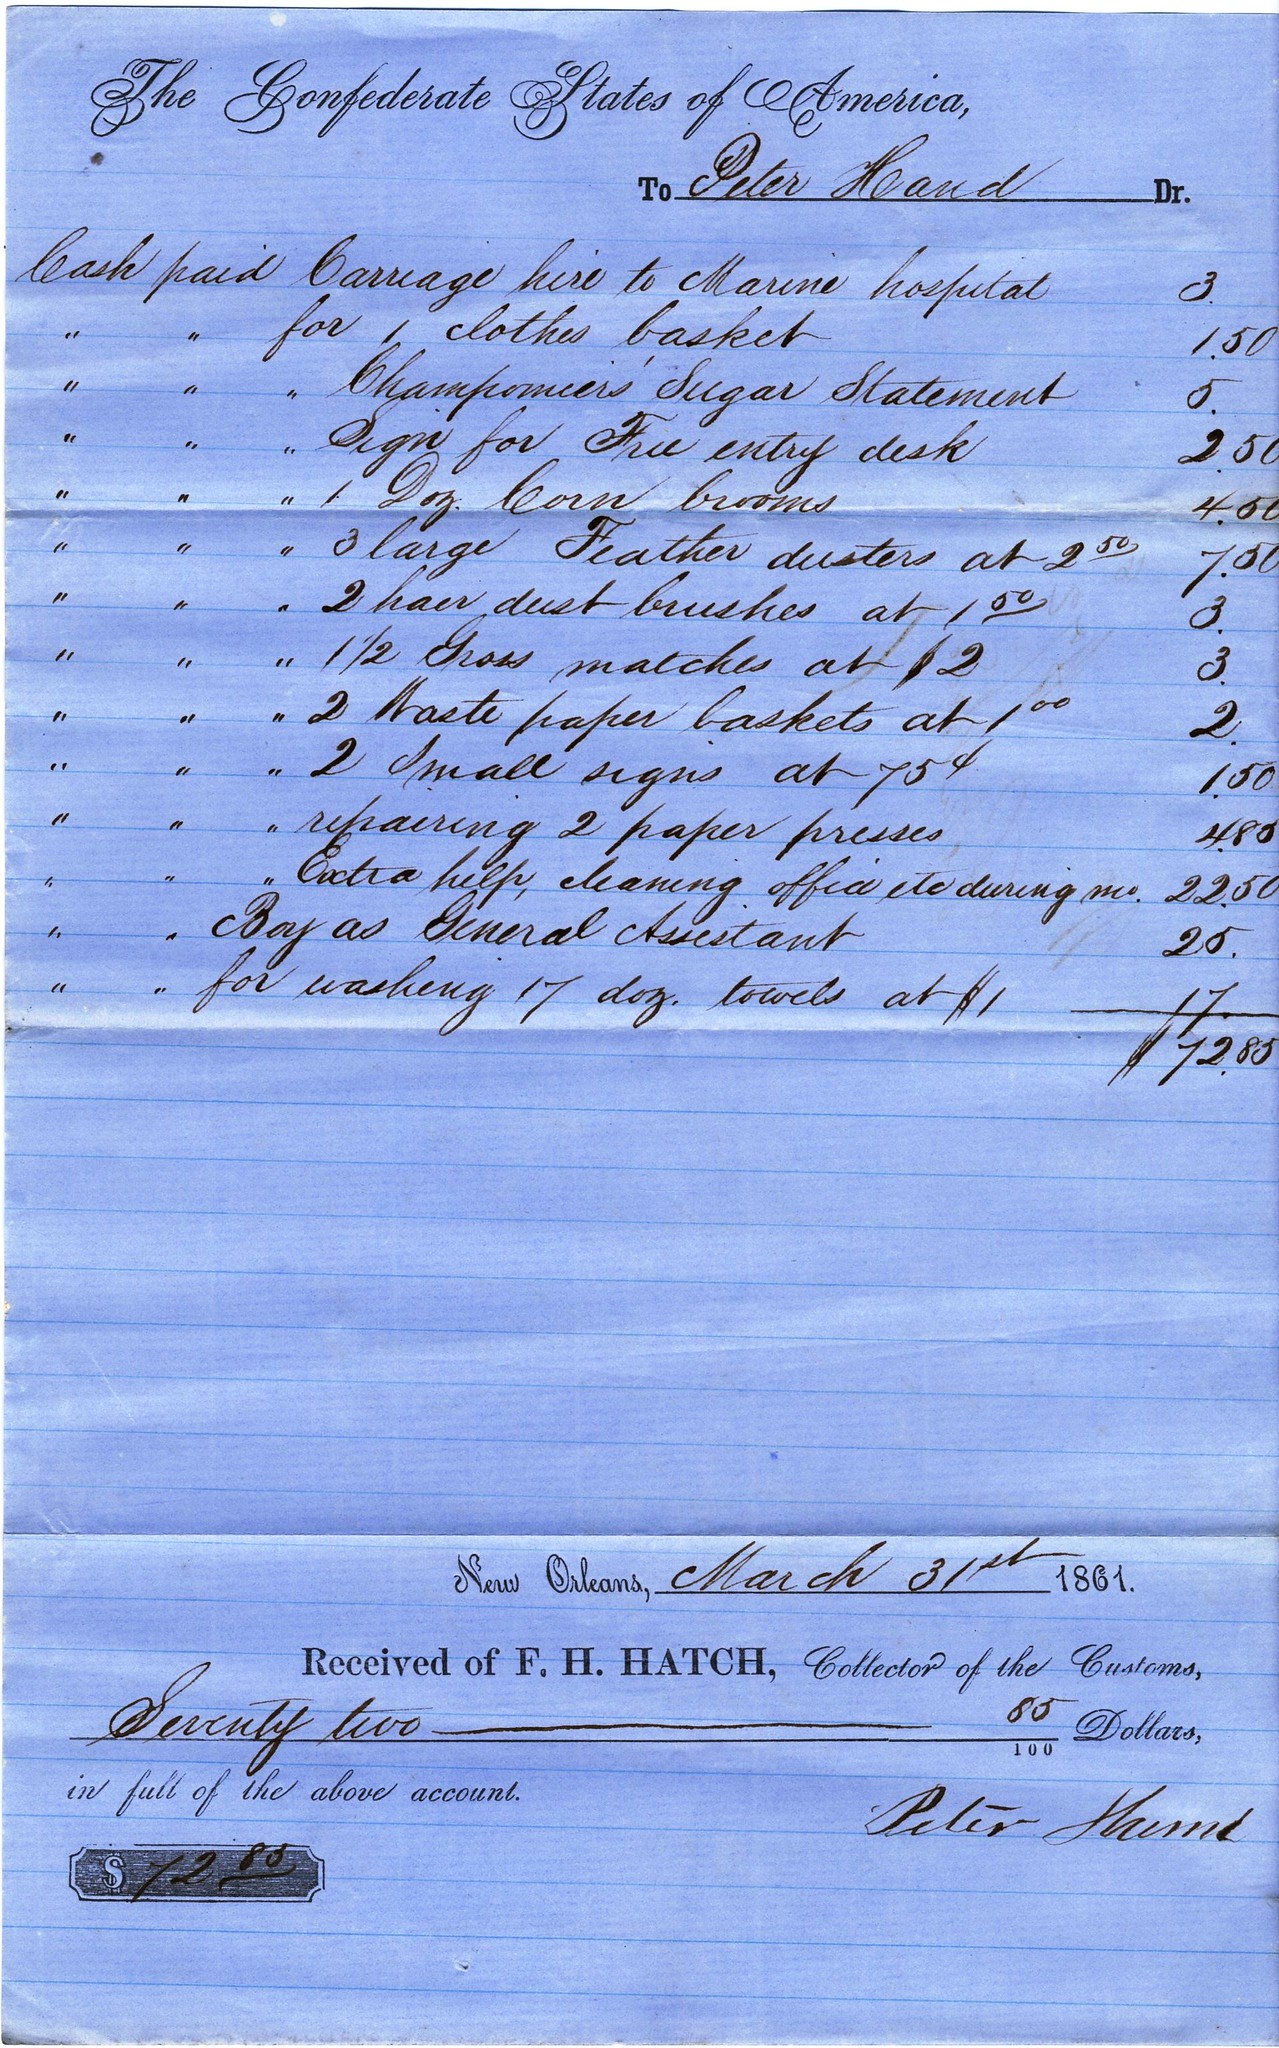 The Confederate States of America,
To Peter Hand Dr.
Cash paid Carriage hire to Marine hospital 3.
" " for 1 clothes basket 1.50
" " " Champomiers' Sugar Statement 5.
" " " Sign for Free entry desk 2.50
" " " 1 Doz. Corn brooms 4.50
" " " 3 large Feather dusters at 2 50 7.50
" " " 2 hair dust brushes at 1 50 3.
" " " 1 1/2 Gross matches at $2 3.
" " " 2 Waste paper baskets at 1 00 2.
" " " 2 Small signs at 75¢ 1.50
" " " repairing 2 paper presses 4.85
" " " Extra help, cleaning office etc during mo. 22.50
" " Boy as General Assistant 25.
" " for washing 17 doz. towels at $1 17.
$72.85
New Orleans, March 31st 1861.
Received of F. H. HATCH, Collector of the Customs,
Seventy two 85/100 Dollars,
in full of the above account.
Peter
$ 72 85